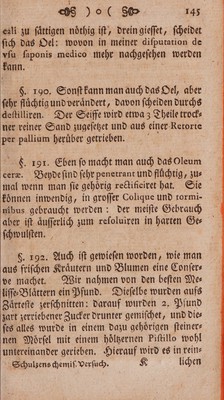 § ) o ( § 145
eoli zu sättigen nöthig ist, drein giesset, scheidet
sich das Oel: wovon in meiner disputation de
usu saponis medico mehr nachgesehen werden
kann.
§. 190. Sonst kann man auch das Oel, aber
sehr flüchtig und verändert, davon scheiden durchs
destilliren. Der Seiffe wird etwa 3 Theile trock-
ner reiner Sand zugesetzet und aus einer Retorte
per pallium herüber getrieben.
§. 191. Eben so macht man auch das Oleum
ceræ. Beyde sind sehr penetrant und flüchtig, zu-
mal wenn man sie gehörig rectificiret hat. Sie
können inwendig, in grosser Colique und tormi-
nibus gebraucht werden: der meiste Gebrauch
aber ist äusserlich zum resolviren in harten Ge-
schwulsten.
§. 192. Auch ist gewiesen worden, wie man
aus frischen Kräutern und Blumen eine Conser-
ve machet. Wir nahmen von den besten Me-
lisse-Blättern ein Pfund. Dieselbe wurden aufs
Zärteste zerschnitten: darauf wurden 2. Pfund
zart zerriebener Zucker drunter gemischet, und die-
ses alles wurde in einem dazu gehörigen steiner-
nen Mörsel mit einem höltzernen Pistillo wohl
untereinander gerieben. Hierauf wird es in rein-
Schulzens chemis. Versuch. K lichen